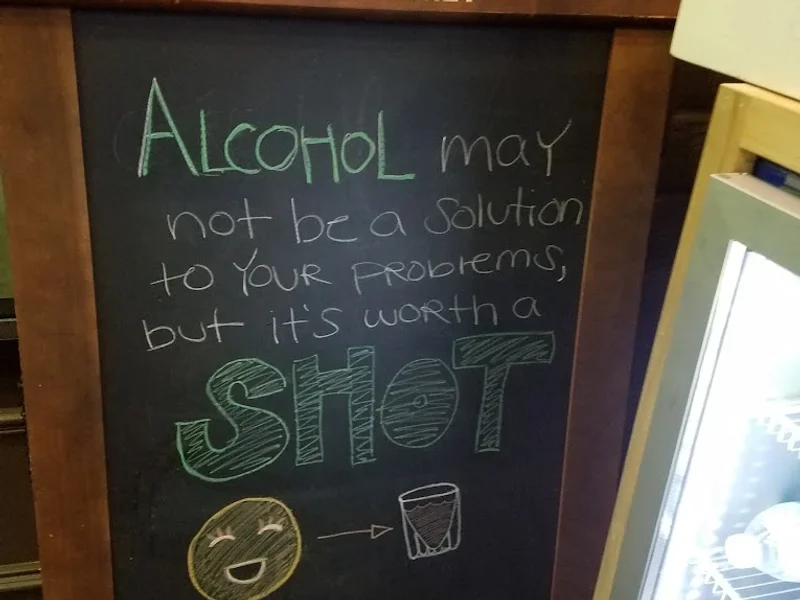 ALCOHOL may
not be a solution
to YOUR PROBlEMS,
but it's WORTH a
SHOT